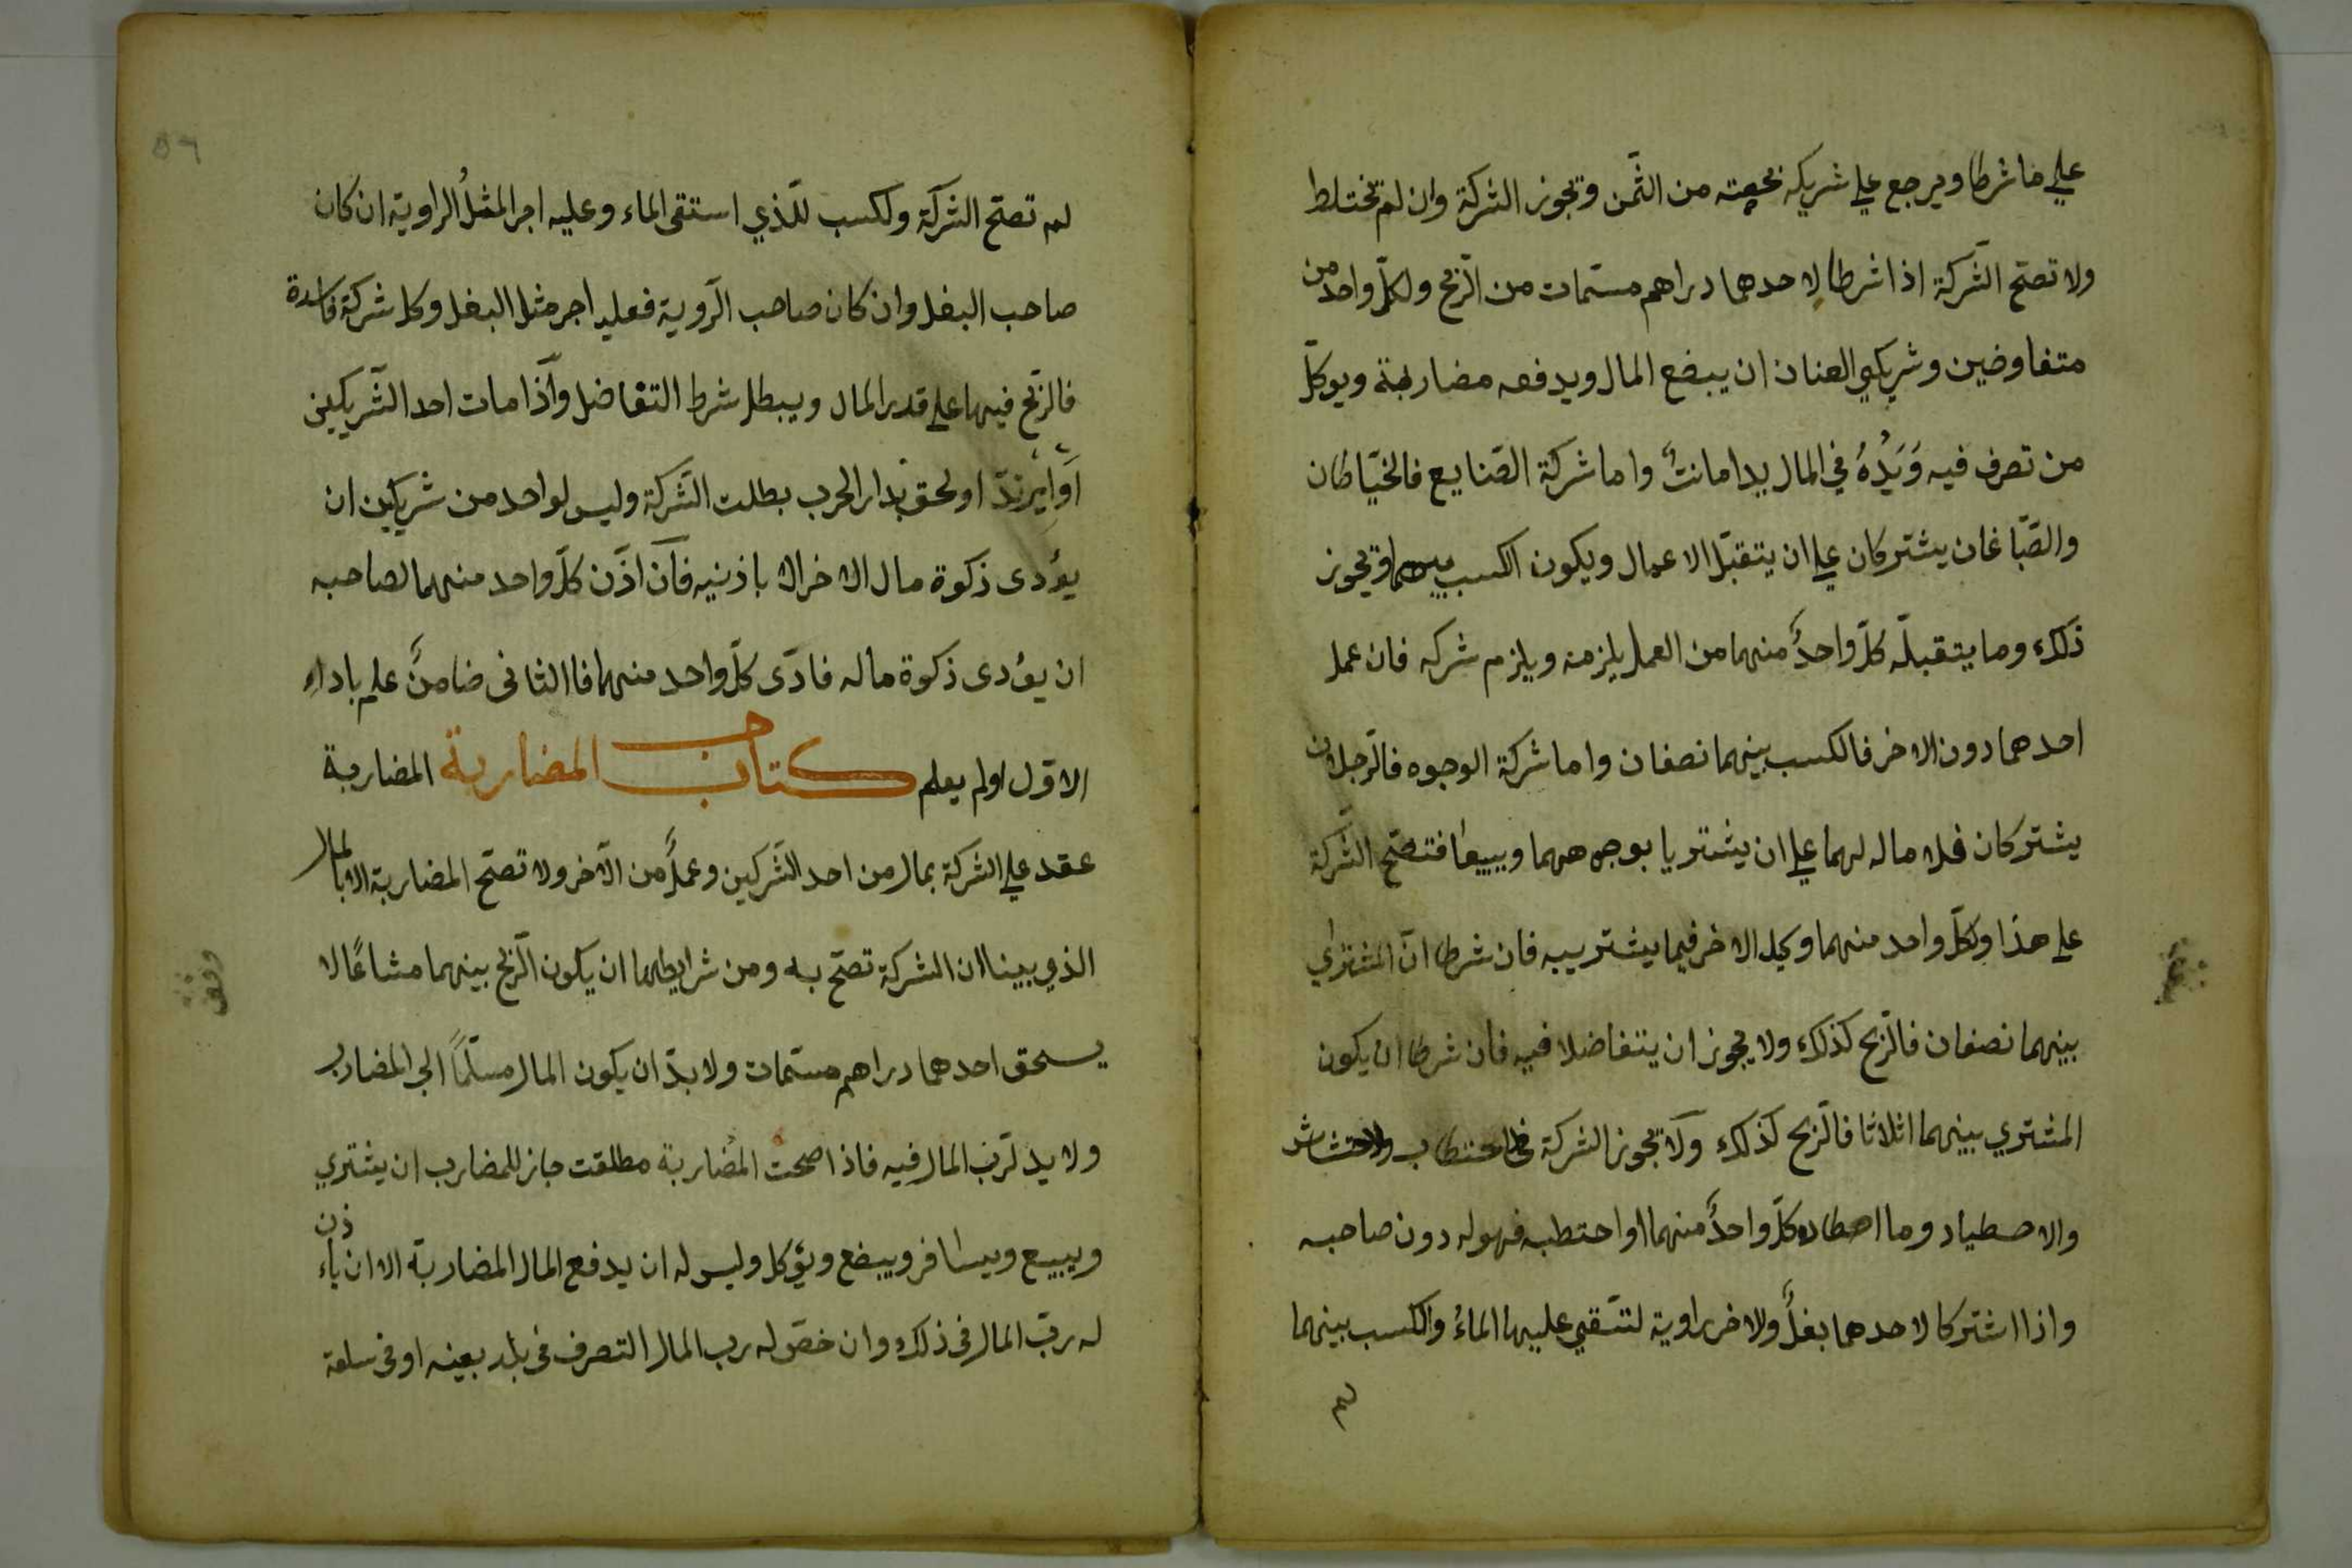 علي ما شرطا ويرجع علي شريكه بحصته من الثّمن وتجوز الشركة وان لم تختلط
ولا تصحّ الشّركة اذا شرطا لاحدهما دراهم مسمّات من الرّبح ولكلّ واحد من
متفاوضين وشريكي العنان ان يبضع المال ويدفعه مضاربة ويوكلّ
من تصرف فيه وَيَدُهُ في المال يد امانتٌ واما شركة الصّنايع فالخيّاطان
والصّباغان يشتركان علي ان يتقبّل الاعمال ويكون الكسب بينهما وتجوز
ذلك وما يتقبلّه كلّ واحدٌ منهما من العمل يلزمه ويلزم شركه فان عمل
احدهما دون الاخر فالكسب بينهما نصفان واما شركة الوجوه فالرّجلان
يشتركان فلا ماله لهما علي ان يشتريا بوجوههما ويبيعا فتصحّ الشّركة
علي هذا ولكلّ واحد منهما وكيل الاخر فيما يشتريبه فان شرطا انّ المشتراي
بينهما نصفان فالرّبح كذلك ولا يجوز ان يتفاضلا فيه فان شرطا ان يكون
المشتري بينهما اثلاثا فالرّبح كذلك ولا تجوز الشركة في الاحتطاب والاحتشاش
والاصطياد وما اصطاده كلّ واحدٌ منهما او احتطبه فهو له دون صاحبه
واذا اشتركا لاحدهما بغلٌ ولاخر راوية لتسّقي عليها الماءُ والكسب بينهما
لم
٥٦
لم تصحّ الشّركة ولكسب للّذي استقى الماء وعليه اجر المثلُ الراوية ان كان
صاحب البغل وان كان صاحب الرّوية فعليه اجر مثل البغل وكل شركة فاسدة
فالرّبح فيها علي قدر المال ويبطل شرط التفاضل واذا مات احد الشّريكين
اوارتدّ او لحق بدار الحرب بطلت الشّركة وليس لواحد من شريكين ان
يؤدى زكوة مال الاخر الا باذنيه فان اذّن كلّ واحد منهما لصاحبه
ان يؤدى زكوة ماله فادّى كلّ واحد منهما فا الثانى ضامنٌ علم باداء
الاوّل اولم يعلم كتاب المضاربة المضاربة
عقد علي الشركة بمال من احد الشّركين وعملٌ من الآخر ولا تصحّ المضاربة الا بالمال
الذي بينا ان الشركة تصحّ به ومن شرايطهما ان يكون الرّبح بينهما مشاعًا لا
يسحق احدهما دراهم مسمّات ولا بدّ ان يكون المال مسلّمًا الي المضارب
ولا يد لرّب المال فيه فاذا صحت المُضاربة مطلقت جاز للمضارب ان يشتري
ويبيع ويسافر ويبضع ويؤكل وليس له ان يدفع المال المضاربة الا ان ياءذن
له ربّ المال فى ذلك وان خصّ له رب المال التصرف فى بلد بعينه او فى سلعة
وقف